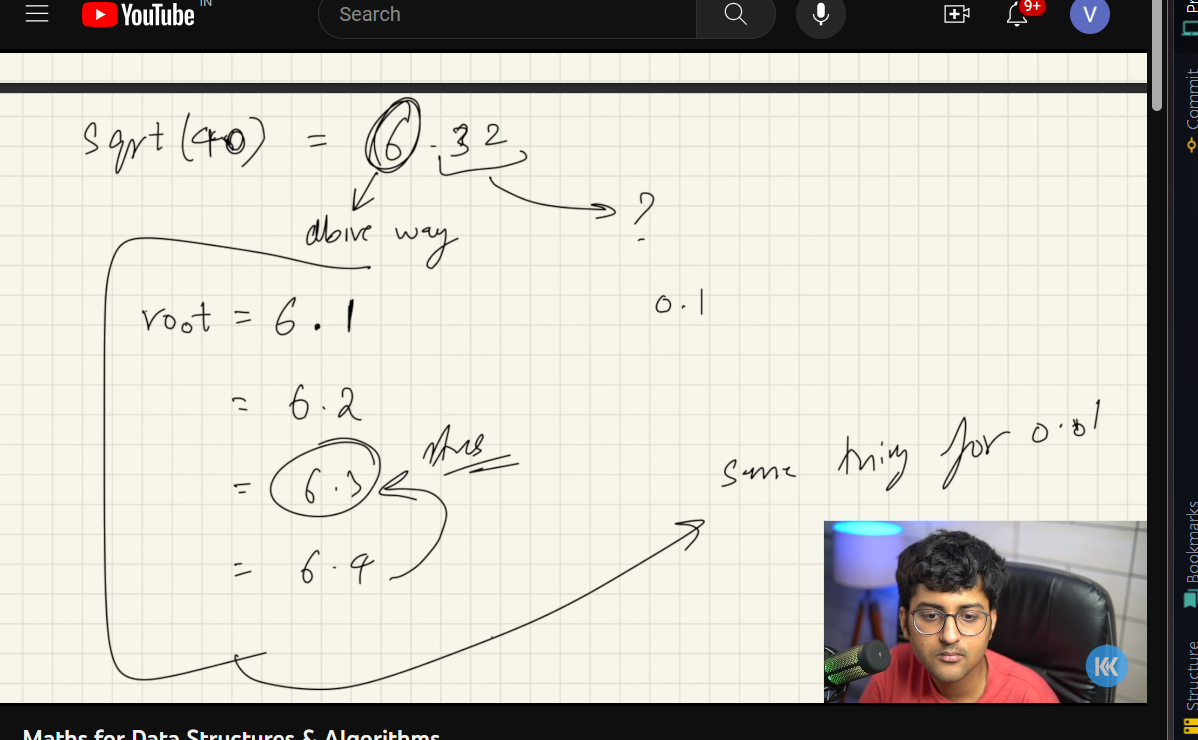 YouTube IN
Search
9+
V
Sqrt (40) = 6.32
above way
?
root = 6.1
0.1
= 6.2
= 6.3
= 6.4
same thing for 0.01
KK
Maths for Data Structures & Algorithms
Commit
Bookmarks
Structure